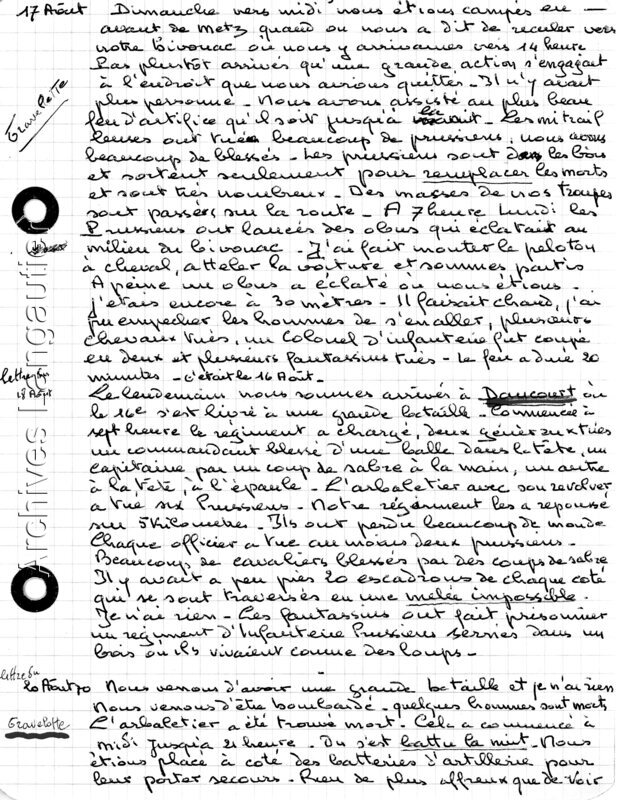 17 Août Dimanche vers midi nous étions campés en —
avant de Metz quand on nous a dit de reculer vers
notre bivouac où nous y arrivames vers 14 heure
Pas plustôt arrivés qu'une grande action s'engageait
à l'endroit que nous avions quittés - Il n'y avait
Gravelotte
plus personne - Nous avons assisté au plus beau
feu d'artifice qu'il soit jusqu'à la - Les mitrail
leuses ont tuée beaucoup de prussiens, nous avons
beaucoup de blessés - Les prussiens sont dans les bois
et sortent seulement pour remplacer les morts
et sont très nombreux - Des masses de nos troupes
sont passées sur la route - A 7 heure Lundi les
Prussiens ont lancés des obus qui éclatait au
milieu du bivouac - J'ai fait monter le peloton
à cheval, atteler la voiture et sommes partis
A peine un obus a éclaté où nous étions -
j'étais encore à 30 mètres - Il faisait chaud, j'ai
pu empecher les hommes de s'en aller, plusieurs
chevaux tués, un Colonel d'infanterie fut coupé
en deux et plusieurs fantassins tués - Le feu a duré 20
minutes - c'était le 16 Août -
lettre du
18 Août
Le lendemain nous sommes arrivés à Doncourt où
le 16e s'est livré à une grande bataille - Commencé à
sept heure le régiment a chargé, deux généraux tués
un commandant blessé d'une balle dans la tête, un
capitaine par un coup de sabre à la main, un autre
à la tête, à l'épaule - L'arbaletier avec son revolver
a tué six Prussiens - Notre régiment les a repoussé
sur 5 kilomètres - Ils ont perdu beaucoup de monde
Chaque officier a tué au moins deux prussiens -
Beaucoup de cavaliers blessés par des coups de sabre
Il y avait a peu près 20 escadrons de chaque coté
qui se sont traversés en une melée impossible.
Je n'ai rien - Les fantassins ont fait prisonnier
un régiment d'Infanterie Prussiens serriés dans un
bois où ils vivaient comme des loups -
lettre du
20 Août 70 Nous venons d'avoir une grande bataille et je n'ai rien
Nous venons d'être bombardé - quelques hommes sont morts
Gravelotte L'arbaletier a été trouvé mort - Cela a commencé à
midi jusqu'à 21 heure - On s'est battu la nuit - Nous
étions placé à coté des batteries d'artillerie pour
leur porter secours - Rien de plus affreux que de voir
Archives Langautier